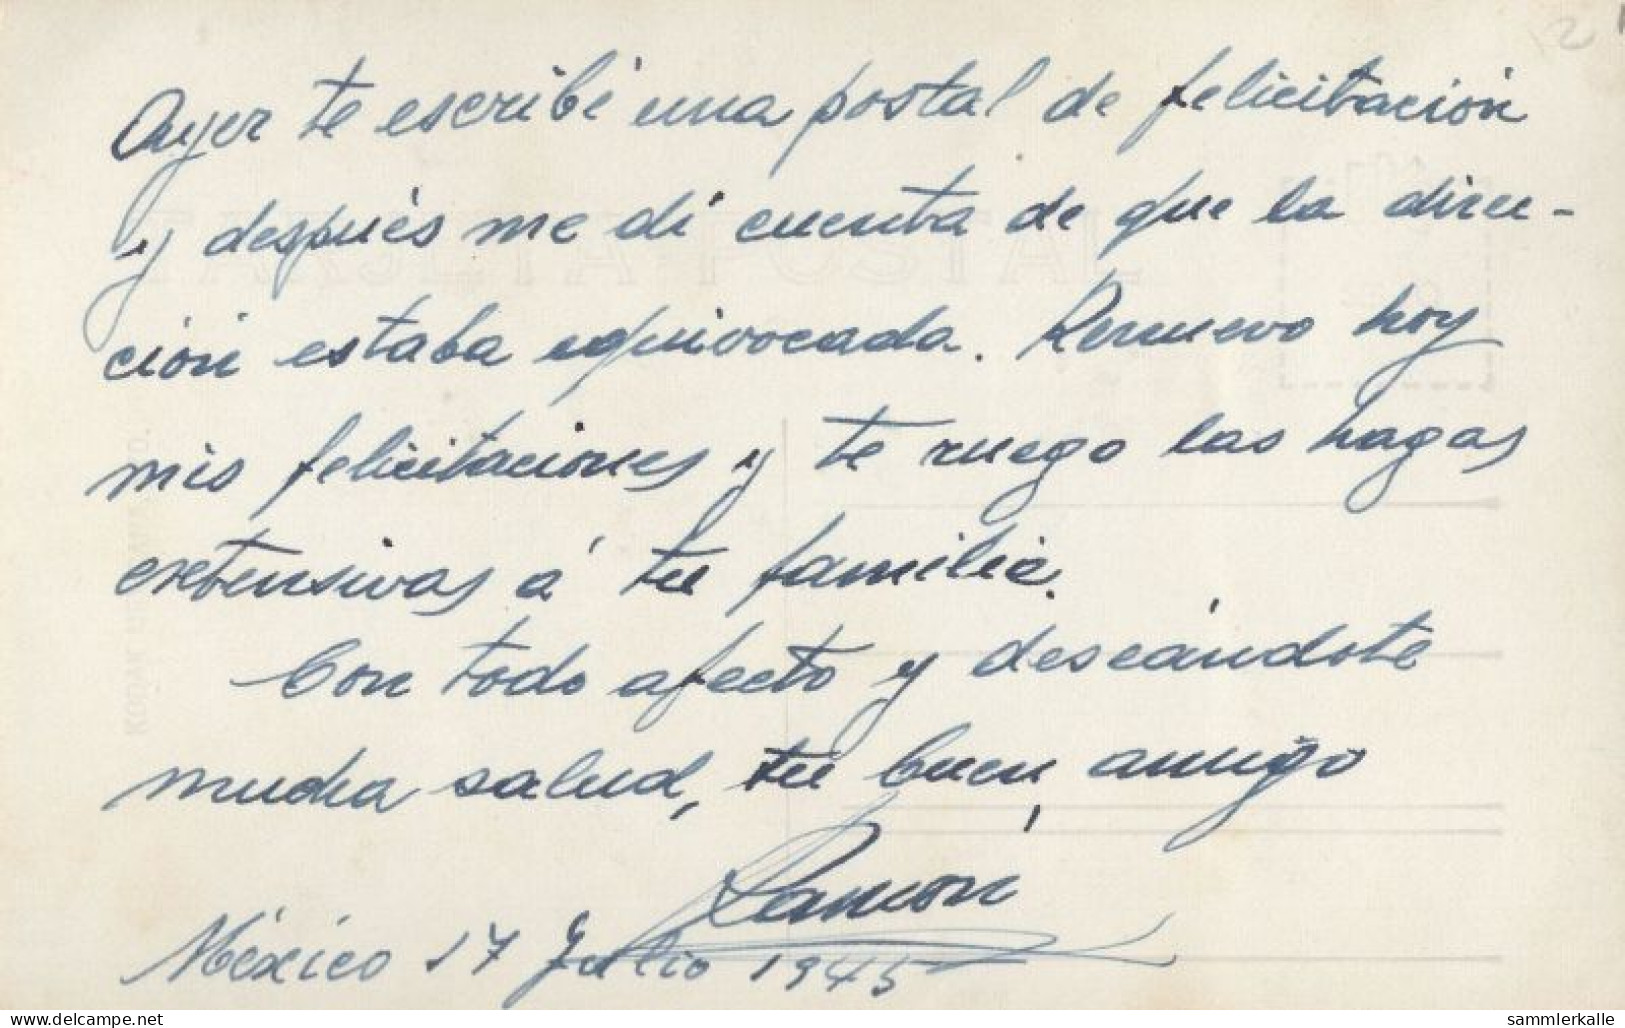 Ayer te escribí una postal de felicitación
y después me di cuenta de que la direc-
ción estaba equivocada. Renuevo hoy
mis felicitaciones y te ruego las hagas
extensivas á tu familia.
Con todo afecto y deseándote
mucha salud, tu buen amigo
Ramón
México 17 Julio 1945
www.delcampe.net
sammlerkalle